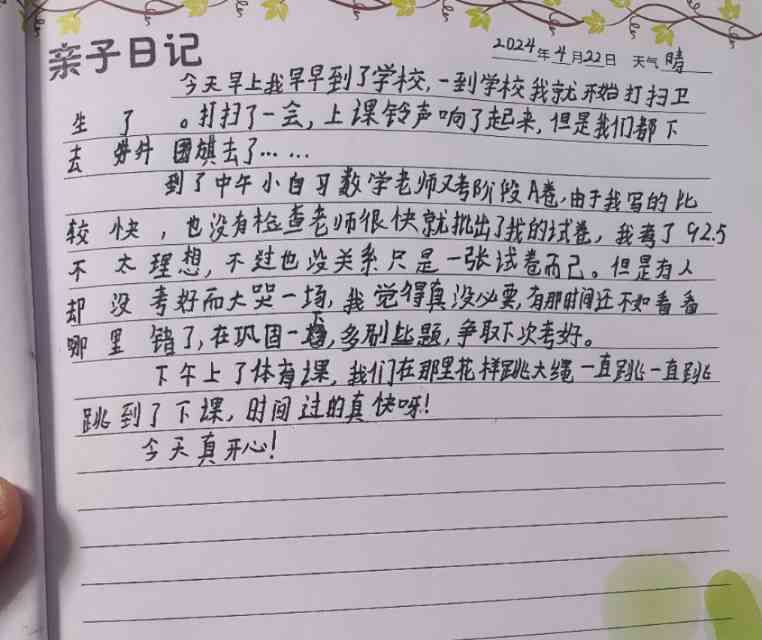 亲子日记
2024年4月22日 天气 晴
今天早上我早早到了学校,一到学校我就开始打扫卫
生了。打扫了一会,上课铃声响了起来,但是我们都下
去 升国旗去了……
到了中午小自习数学老师又考阶段A卷,由于我写的比
较快,也没有检查老师很快就批出了我的试卷,我考了92.5
不太理想,不过也没关系只是一张试卷而已。但是有人
却没考好而大哭一场,我觉得真没必要,有那时间还不如看看
哪里错了,在巩固一下,多刷些题,争取下次考好。
下午上了体育课,我们在那里花样跳大绳一直跳一直跳
跳到了下课,时间过的真快呀!
今天真开心!